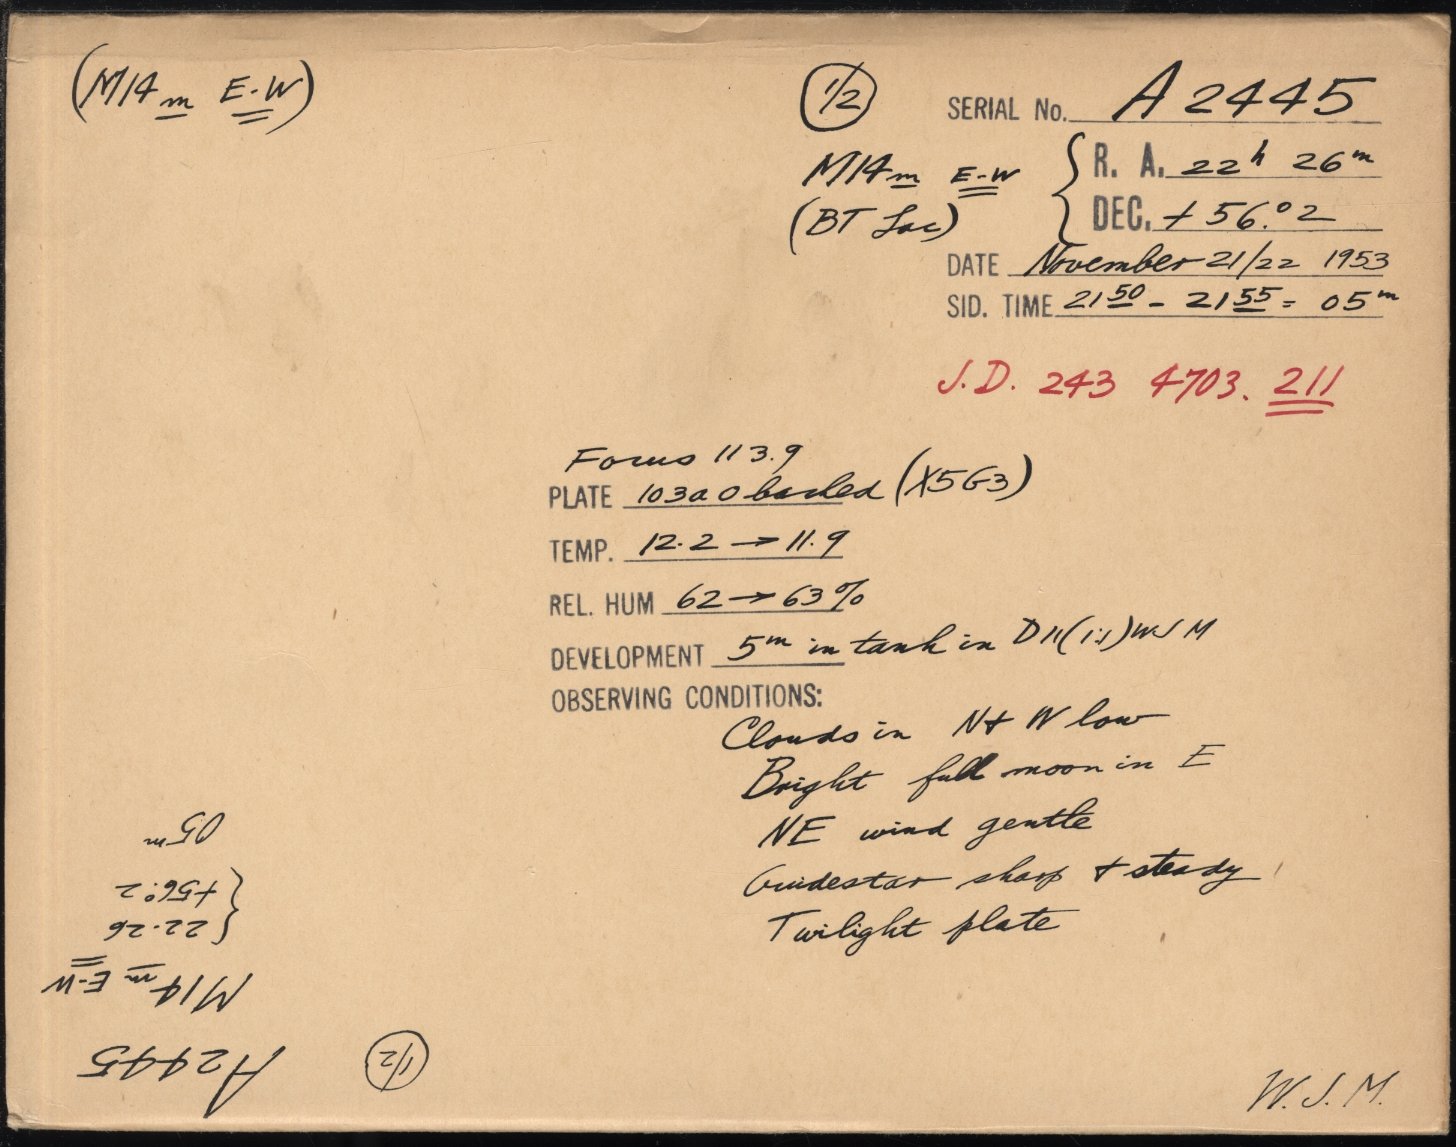 (M14m E-W)
1/2
SERIAL No. A2445
M14m E-W
(BT Lac)
R. A. 22h 26m
DEC. +56.°2
DATE November 21/22 1953
SID. TIME 21 50 - 21 55 = 05m
J.D. 243 4703. 211
Focus 113.9
PLATE 103a O backed (X5G3)
TEMP. 12.2 → 11.9
REL. HUM 62 → 63%
DEVELOPMENT 5m in tank in D11(1:1) WJM
OBSERVING CONDITIONS:
Clouds in N + W low
Bright full moon in E
NE wind gentle
Guidestar sharp + steady
Twilight plate
W.J.M.
A2445
1/2
M14m E-W
22.26
+56.°2
05m